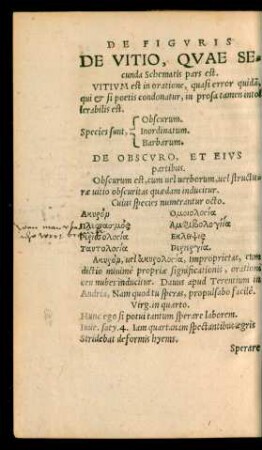 DE FIGVRIS
DE VITIO, QVAE SE
cunda Schematis pars est.
VITIVM est in oratione, quasi error quidā,
qui & si poetis condonatur, in prosa tamen into
lerabilis est.
Obscurum.
Species sunt, Inordinatum.
Barbarum.
DE OBSCVRO, ET EIVS
partibus.
Obscurum est, cum uel uerborum, uel structu
ræ uitio obscuritas quædam inducitur.
Cuius species numerantur octo.
Ακυρομ Ομοιολογία
Πλεονασμός Αμφιβολογία
Περισσολογία Εκλειψις
Ταυτολογία
Ακυρομ, uel ἀκυρολογία, improprietas, cum
dictio minimè propriæ significationis, orationi
ceu nubes inducitur. Dauus apud Terentium in
Andria, Nam quod tu speras, propulsabo facilè.
Virg. in quarto.
Hunc ego si potui tantum sperare laborem.
Iuue. saty. 4. Iam quartanam spectantibus ægris
Stridebat deformis hyems.
Sperare